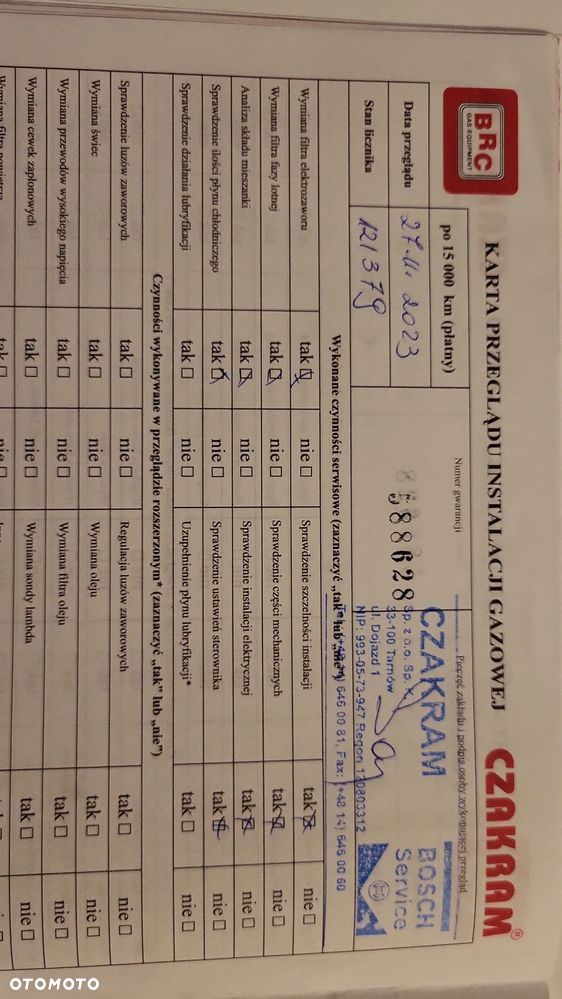 BRC
GAS EQUIPMENT
KARTA PRZEGLĄDU INSTALACJI GAZOWEJ
CZAKRAM®
po 15 000 km (płatny)
Numer gwarancji
Pieczęć zakładu i podpis osoby wykonującej przegląd
Data przeglądu
27.11.2023
Stan licznika
121379
588628
CZAKRAM
Sp. z o.o. Sp. k.
33-100 Tarnów
ul. Dojazd 1
NIP: 993-05-73-947 Regon 120803312
646 00 81, Fax: (+48 14) 646 00 60
BOSCH
Service
Wykonane czynności serwisowe (zaznaczyć „tak” lub „nie”)
Wymiana filtra elektrozaworu tak ☒ nie ☐ Sprawdzenie szczelności instalacji tak ☒ nie ☐
Wymiana filtra fazy lotnej tak ☒ nie ☐ Sprawdzenie części mechanicznych tak ☒ nie ☐
Analiza składu mieszanki tak ☒ nie ☐ Sprawdzenie instalacji elektrycznej tak ☒ nie ☐
Sprawdzenie ilości płynu chłodniczego tak ☒ nie ☐ Sprawdzenie ustawień sterownika tak ☒ nie ☐
Sprawdzenie działania lubryfikacji tak ☐ nie ☐ Uzupełnienie płynu lubryfikacji* tak ☐ nie ☐
Czynności wykonywane w przeglądzie rozszerzonym* (zaznaczyć „tak” lub „nie”)
Sprawdzenie luzów zaworowych tak ☐ nie ☐ Regulacja luzów zaworowych tak ☐ nie ☐
Wymiana świec tak ☐ nie ☐ Wymiana oleju tak ☐ nie ☐
Wymiana przewodów wysokiego napięcia tak ☐ nie ☐ Wymiana filtra oleju tak ☐ nie ☐
Wymiana cewek zapłonowych tak ☐ nie ☐ Wymiana sondy lambda tak ☐ nie ☐
Wymiana filtra powietrza tak ☐ nie ☐
OTOMOTO